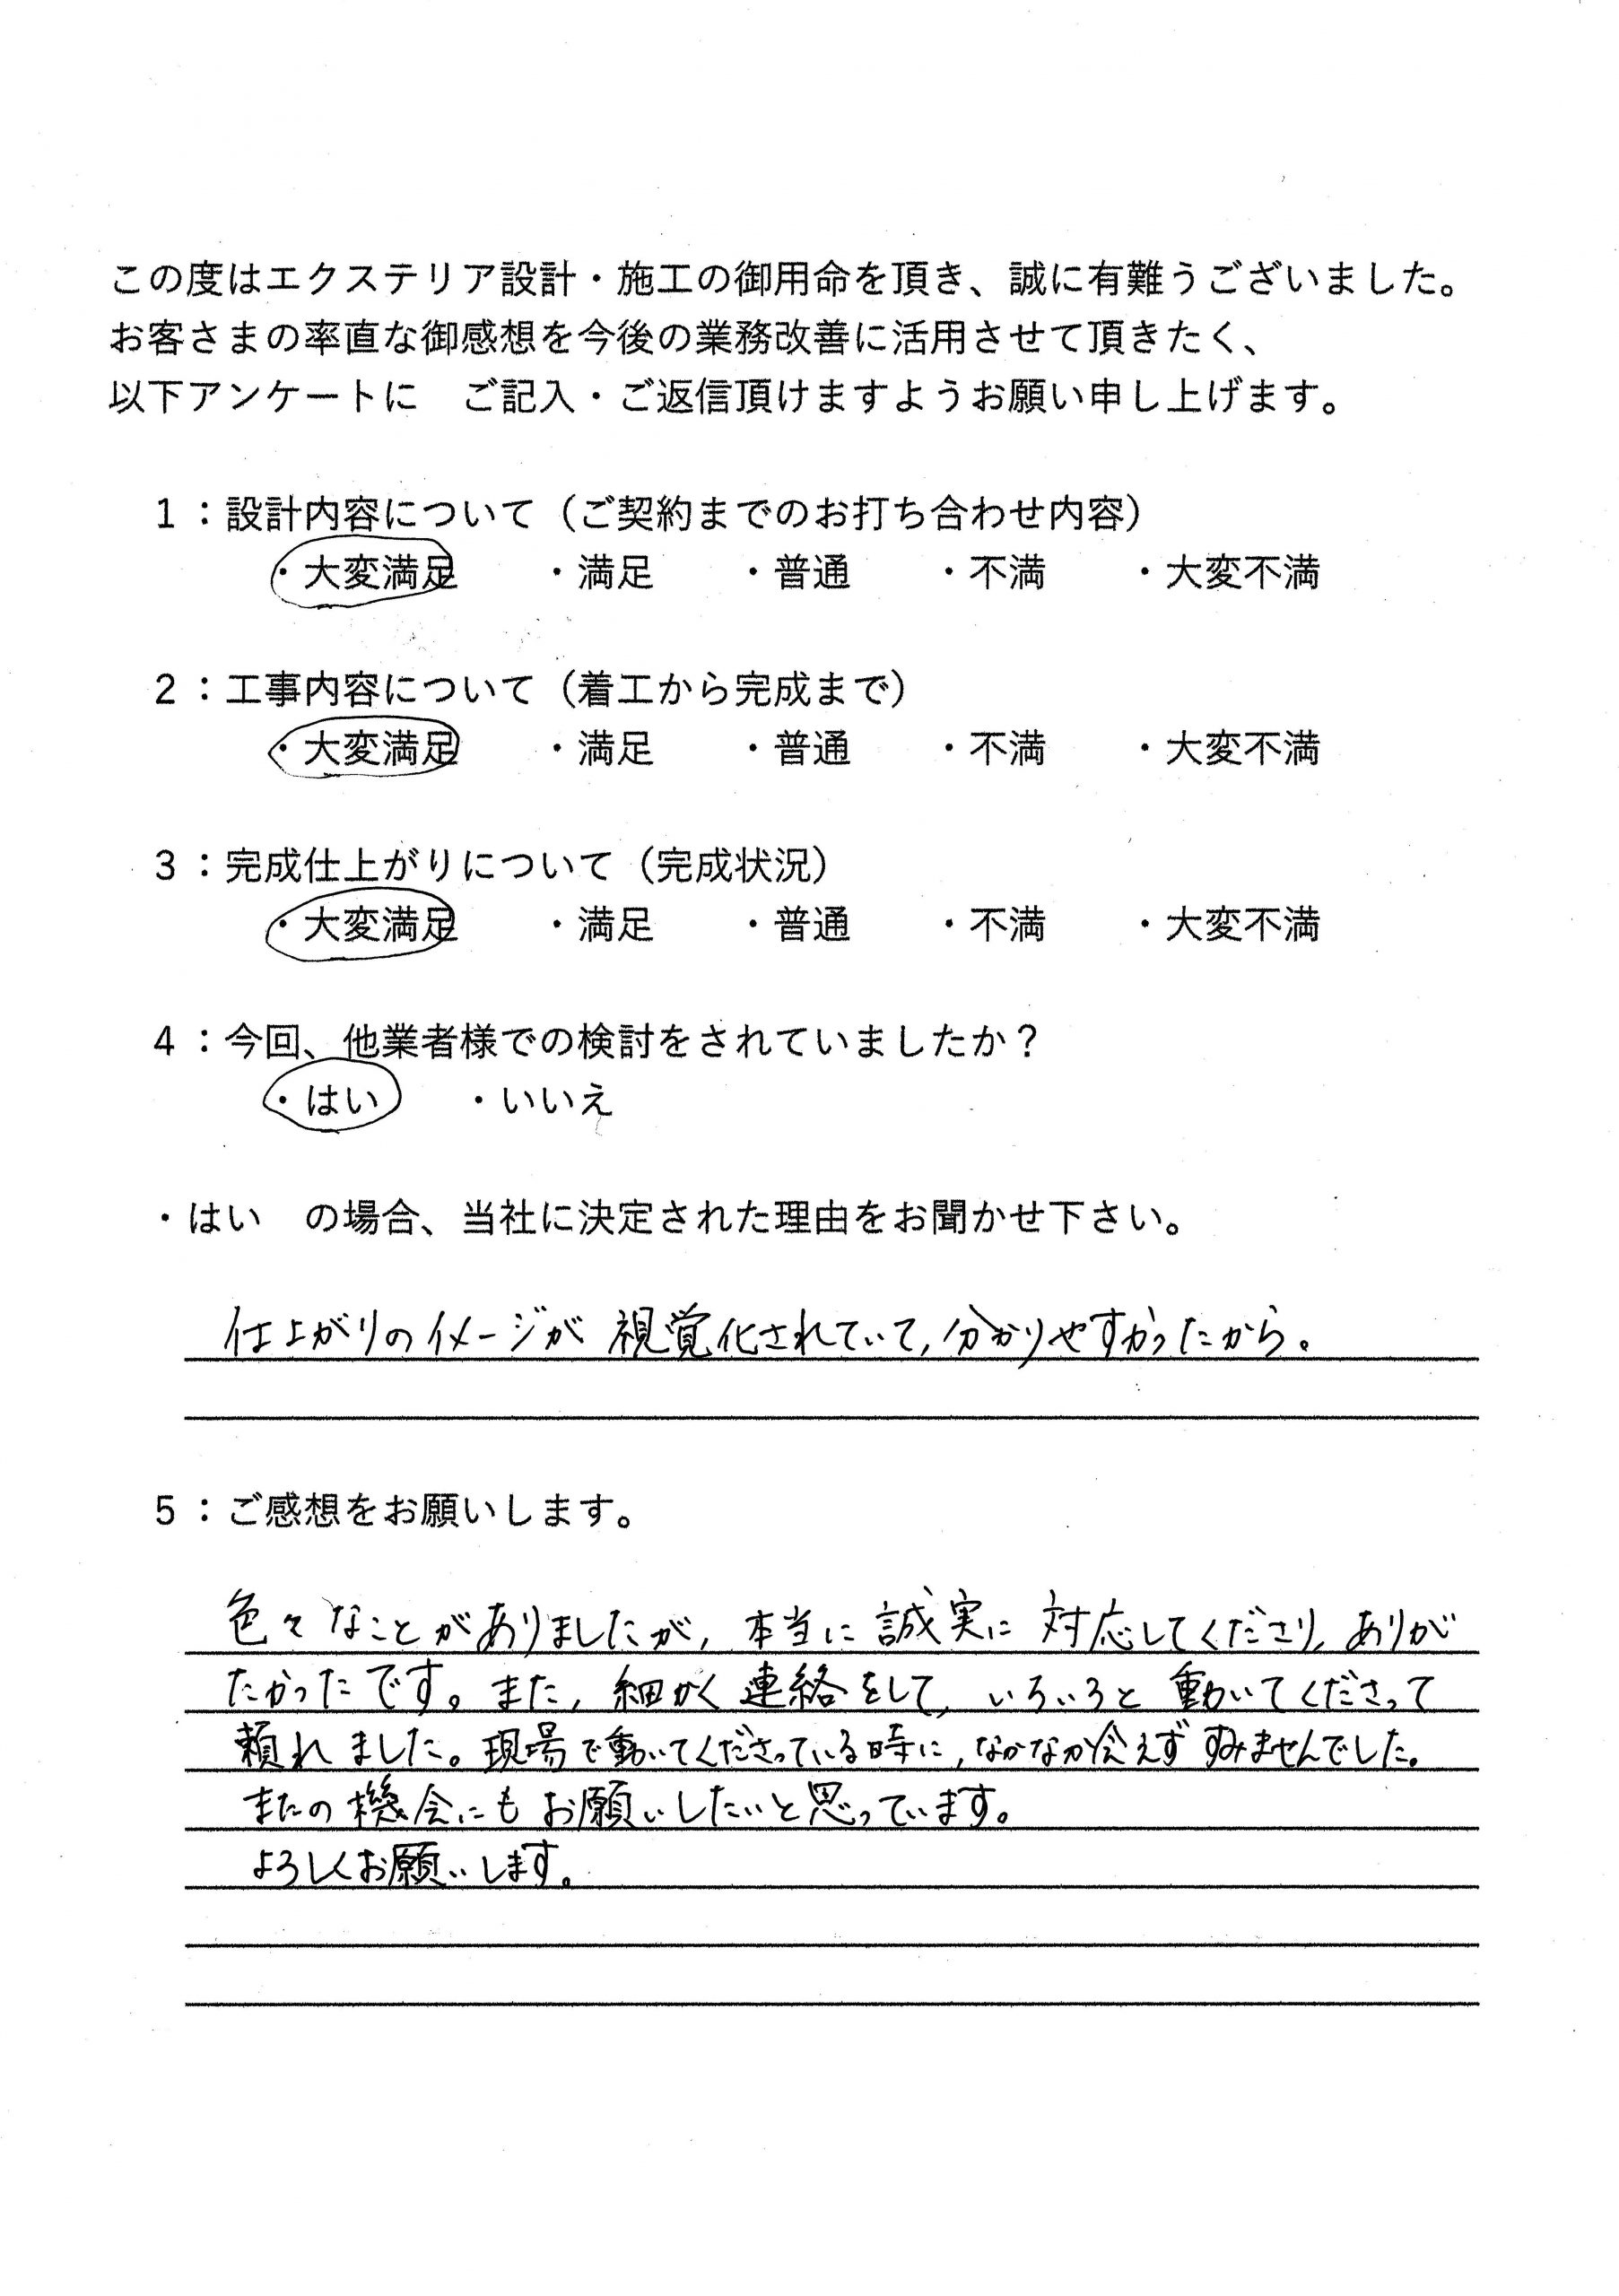 この度はエクステリア設計・施工の御用命を頂き、誠に有難うございました。
お客さまの率直な御感想を今後の業務改善に活用させて頂きたく、
以下アンケートに　ご記入・ご返信頂けますようお願い申し上げます。
１：設計内容について（ご契約までのお打ち合わせ内容）
・大変満足　　・満足　　・普通　　・不満　　・大変不満
２：工事内容について（着工から完成まで）
・大変満足　　・満足　　・普通　　・不満　　・大変不満
３：完成仕上がりについて（完成状況）
・大変満足　　・満足　　・普通　　・不満　　・大変不満
４：今回、他業者様での検討をされていましたか？
・はい　　・いいえ
・はい　の場合、当社に決定された理由をお聞かせ下さい。
仕上がりのイメージが視覚化されていて,分かりやすかったから。
５：ご感想をお願いします。
色々なことがありましたが,本当に誠実に対応してくださり,ありが
たかったです。また,細かく連絡をして,いろいろと動いてくださって
頼れました。現場で動いてくださっている時に,なかなか会えずすみませんでした。
またの機会にもお願いしたいと思っています。
よろしくお願いします。